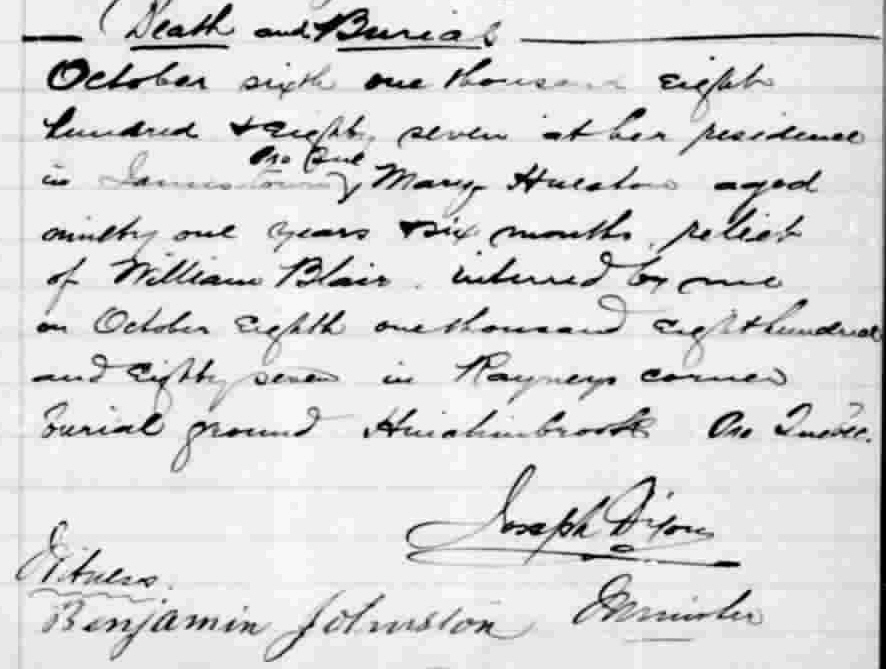 Death and Burial
October sixth one thousand Eight
hundred & Eighty seven at her residence
Pro Que
in Jamestown Mary Hueston aged
ninety one years & six months, relict
of William Blair. interred by me
on October Eighth one thousand Eight hundred
and Eighty seven in Rayneys corner
burial ground Hinchinbrook Pro Quebec.
Joseph Dixon
Witness.
Benjamin Johnston Minister